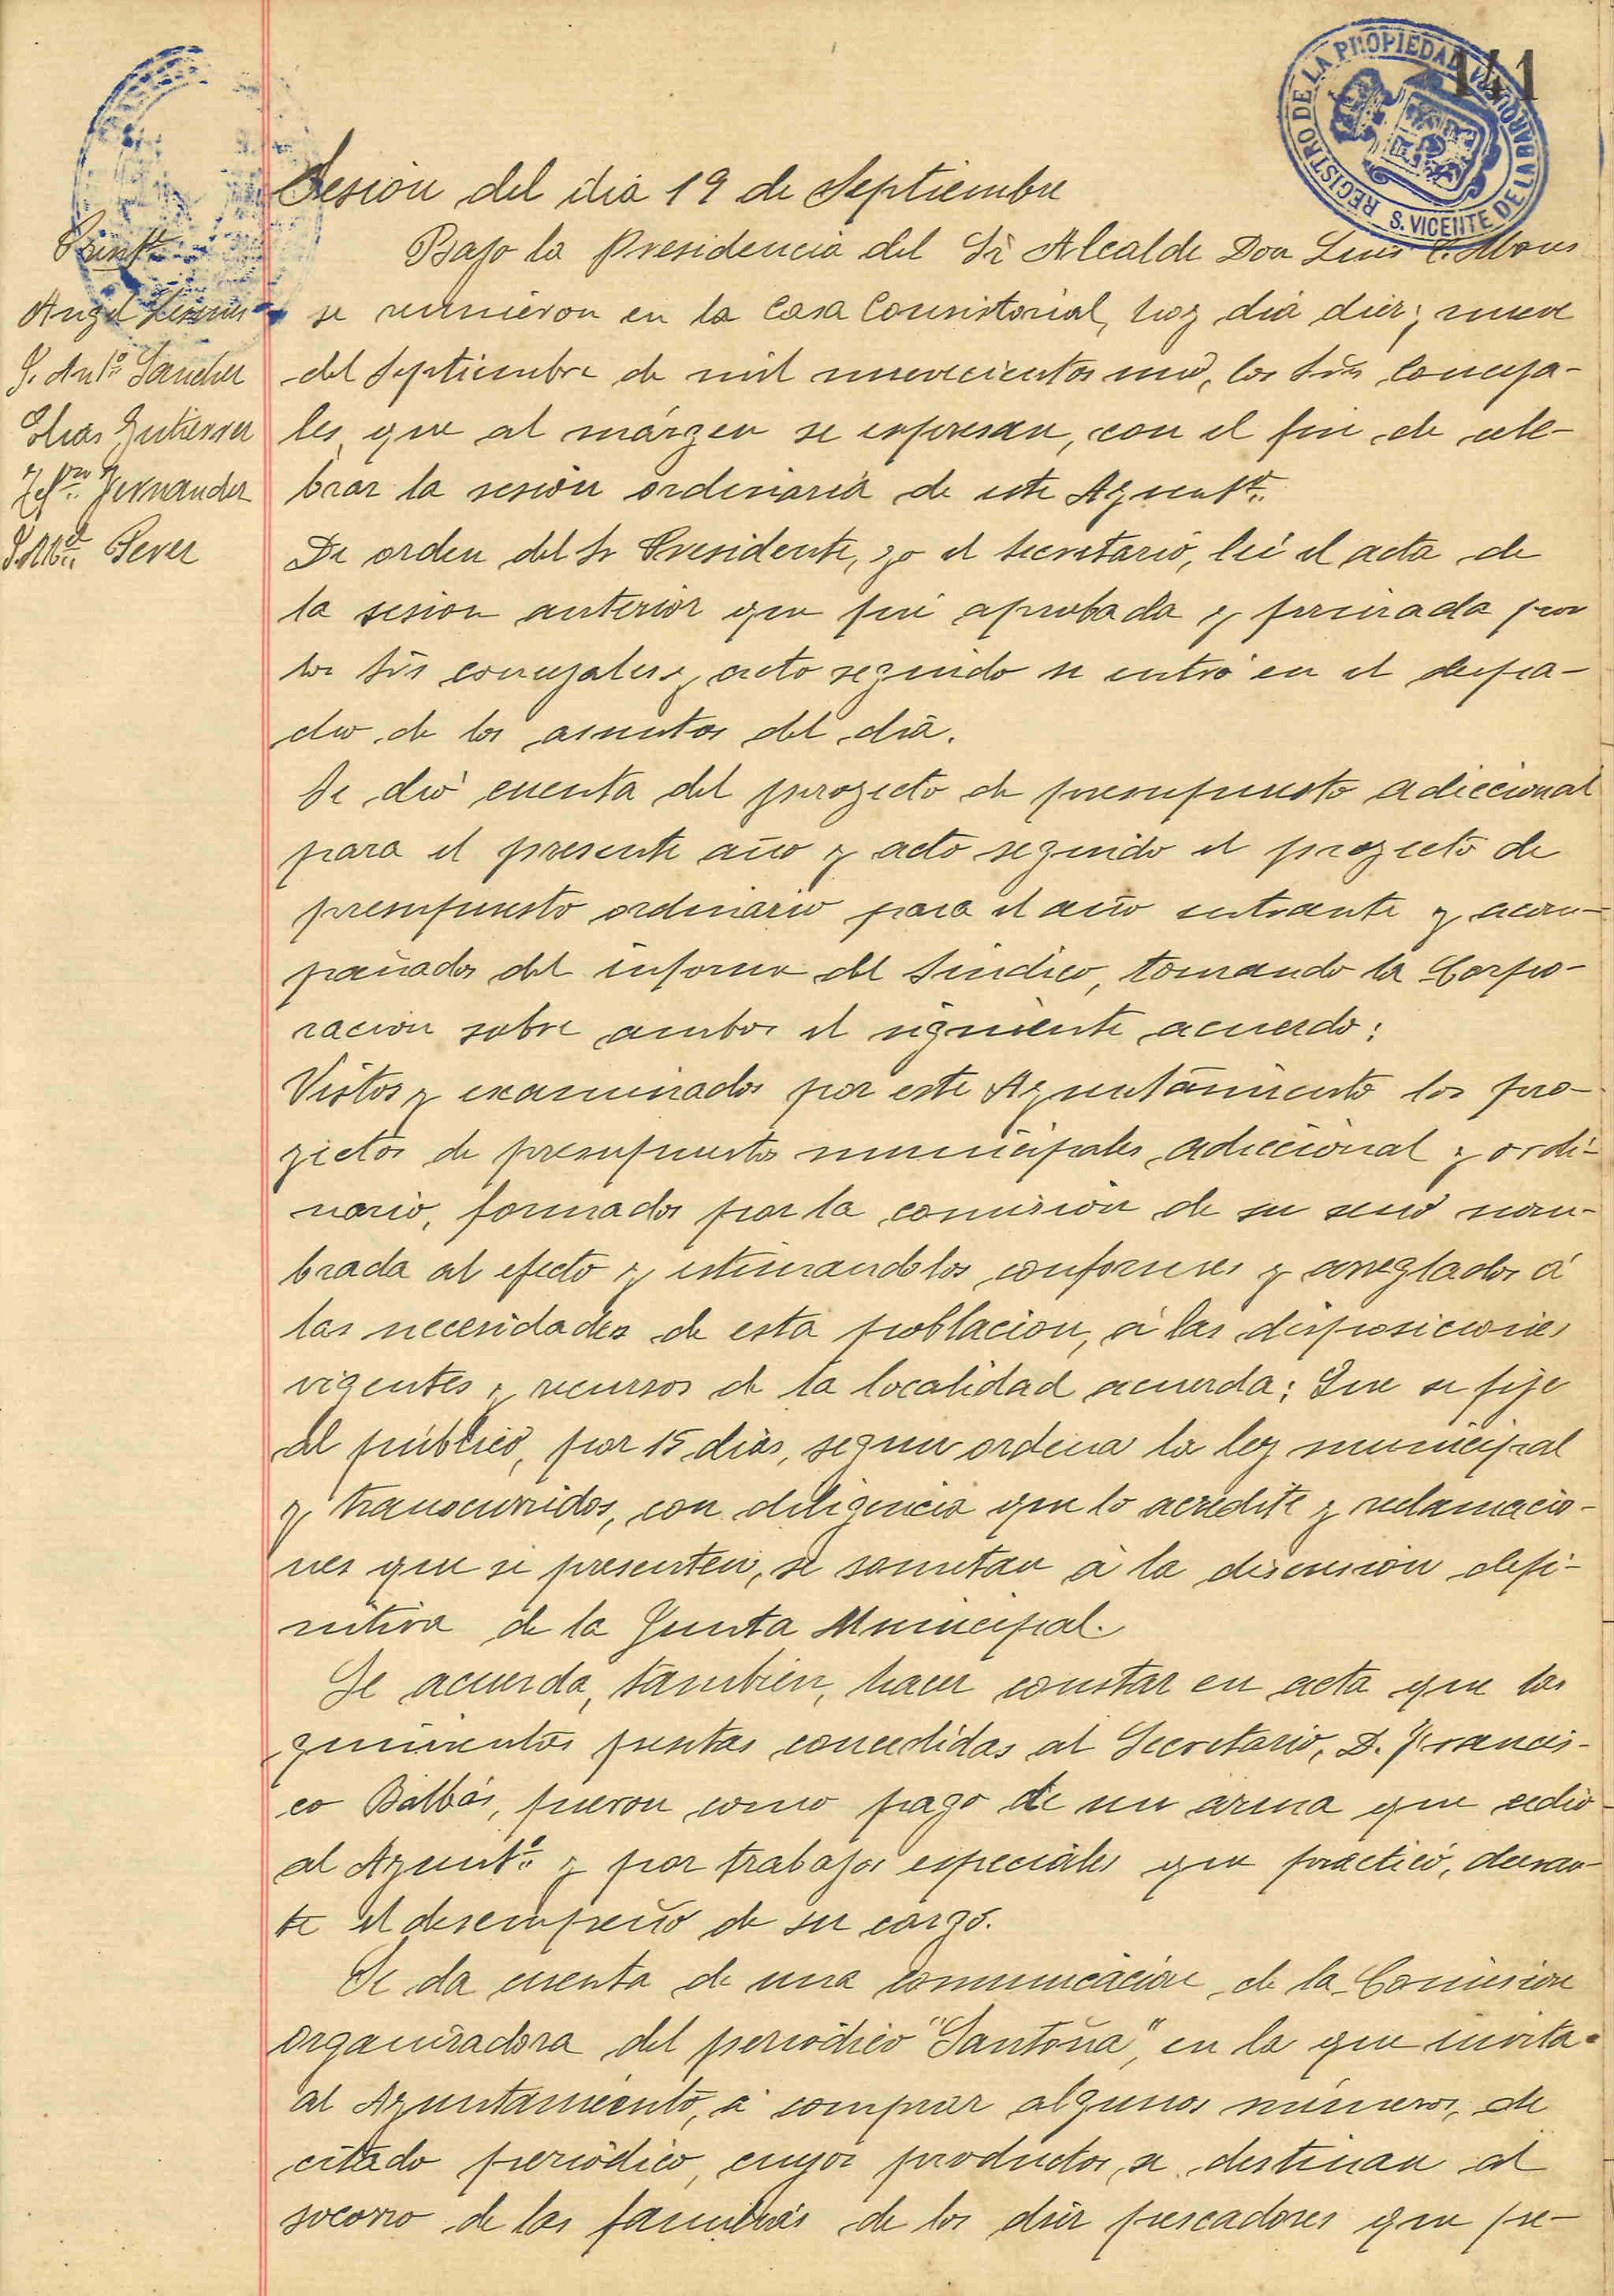 141
REGISTRO DE LA PROPIEDAD
S. VICENTE DE LA BARQUERA
Sesion del dia 19 de Septiembre
Bajo la Presidencia del Sr Alcalde Don Luis
se reunieron en la Casa Consistorial, hoy dia diez y nueve
del Septiembre de mil nuevecientos uno, los Srs Conceja-
les que al márgen se expresan, con el fin de cele-
brar la sesion ordinaria de este Ayuntº.
De orden del Sr Presidente, yo el Secretario, leí el acta de
la sesion anterior que fué aprobada y firmada por
los Srs concejales y acto seguido se entró en el despa-
cho de los asuntos del dia.
Se dió cuenta del proyecto de presupuesto adiccional
para el presente año y acto seguido el proyecto de
presupuesto ordinario para el año entrante y acom-
pañados del informe del Sindico, tomando la Corpo-
racion sobre ambos el siguiente acuerdo:
Vistos y examinados por este Ayuntamiento los pro-
yectos de presupuestos municipales adiccional y ordi-
nario, formados por la comision de su seno nom-
brada al efecto y estimandolos conformes y arreglados á
las necesidades de esta poblacion, á las disposiciones
vigentes y recursos de la localidad acuerda: Que se fije
al público, por 15 dias, segun ordena la ley municipal
y transcurridos, con diligencia que lo acredite y reclamacio-
nes que se presenten, se sometan á la discusion defi-
nitiva de la Junta Municipal.
Se acuerda, tambien, hacer constar en acta que las
quinientas pesetas concedidas al Secretario, D. Francis-
co Balbás, fueron como pago de un arma que cedió
al Ayuntº y por trabajos especiales que practicó, duran-
te el desempeño de su cargo.
Se da cuenta de una comunicacion de la Comision
organizadora del periodico "Santoña", en la que invita
al Ayuntamiento, á comprar algunos números, de
citado periódico, cuyos productos, se destinan al
socorro de las familias de los diez pescadores que pe-
Angel
J. Antº Sanchez
Elias Gutierrez
Zefno Fernandez
Perez